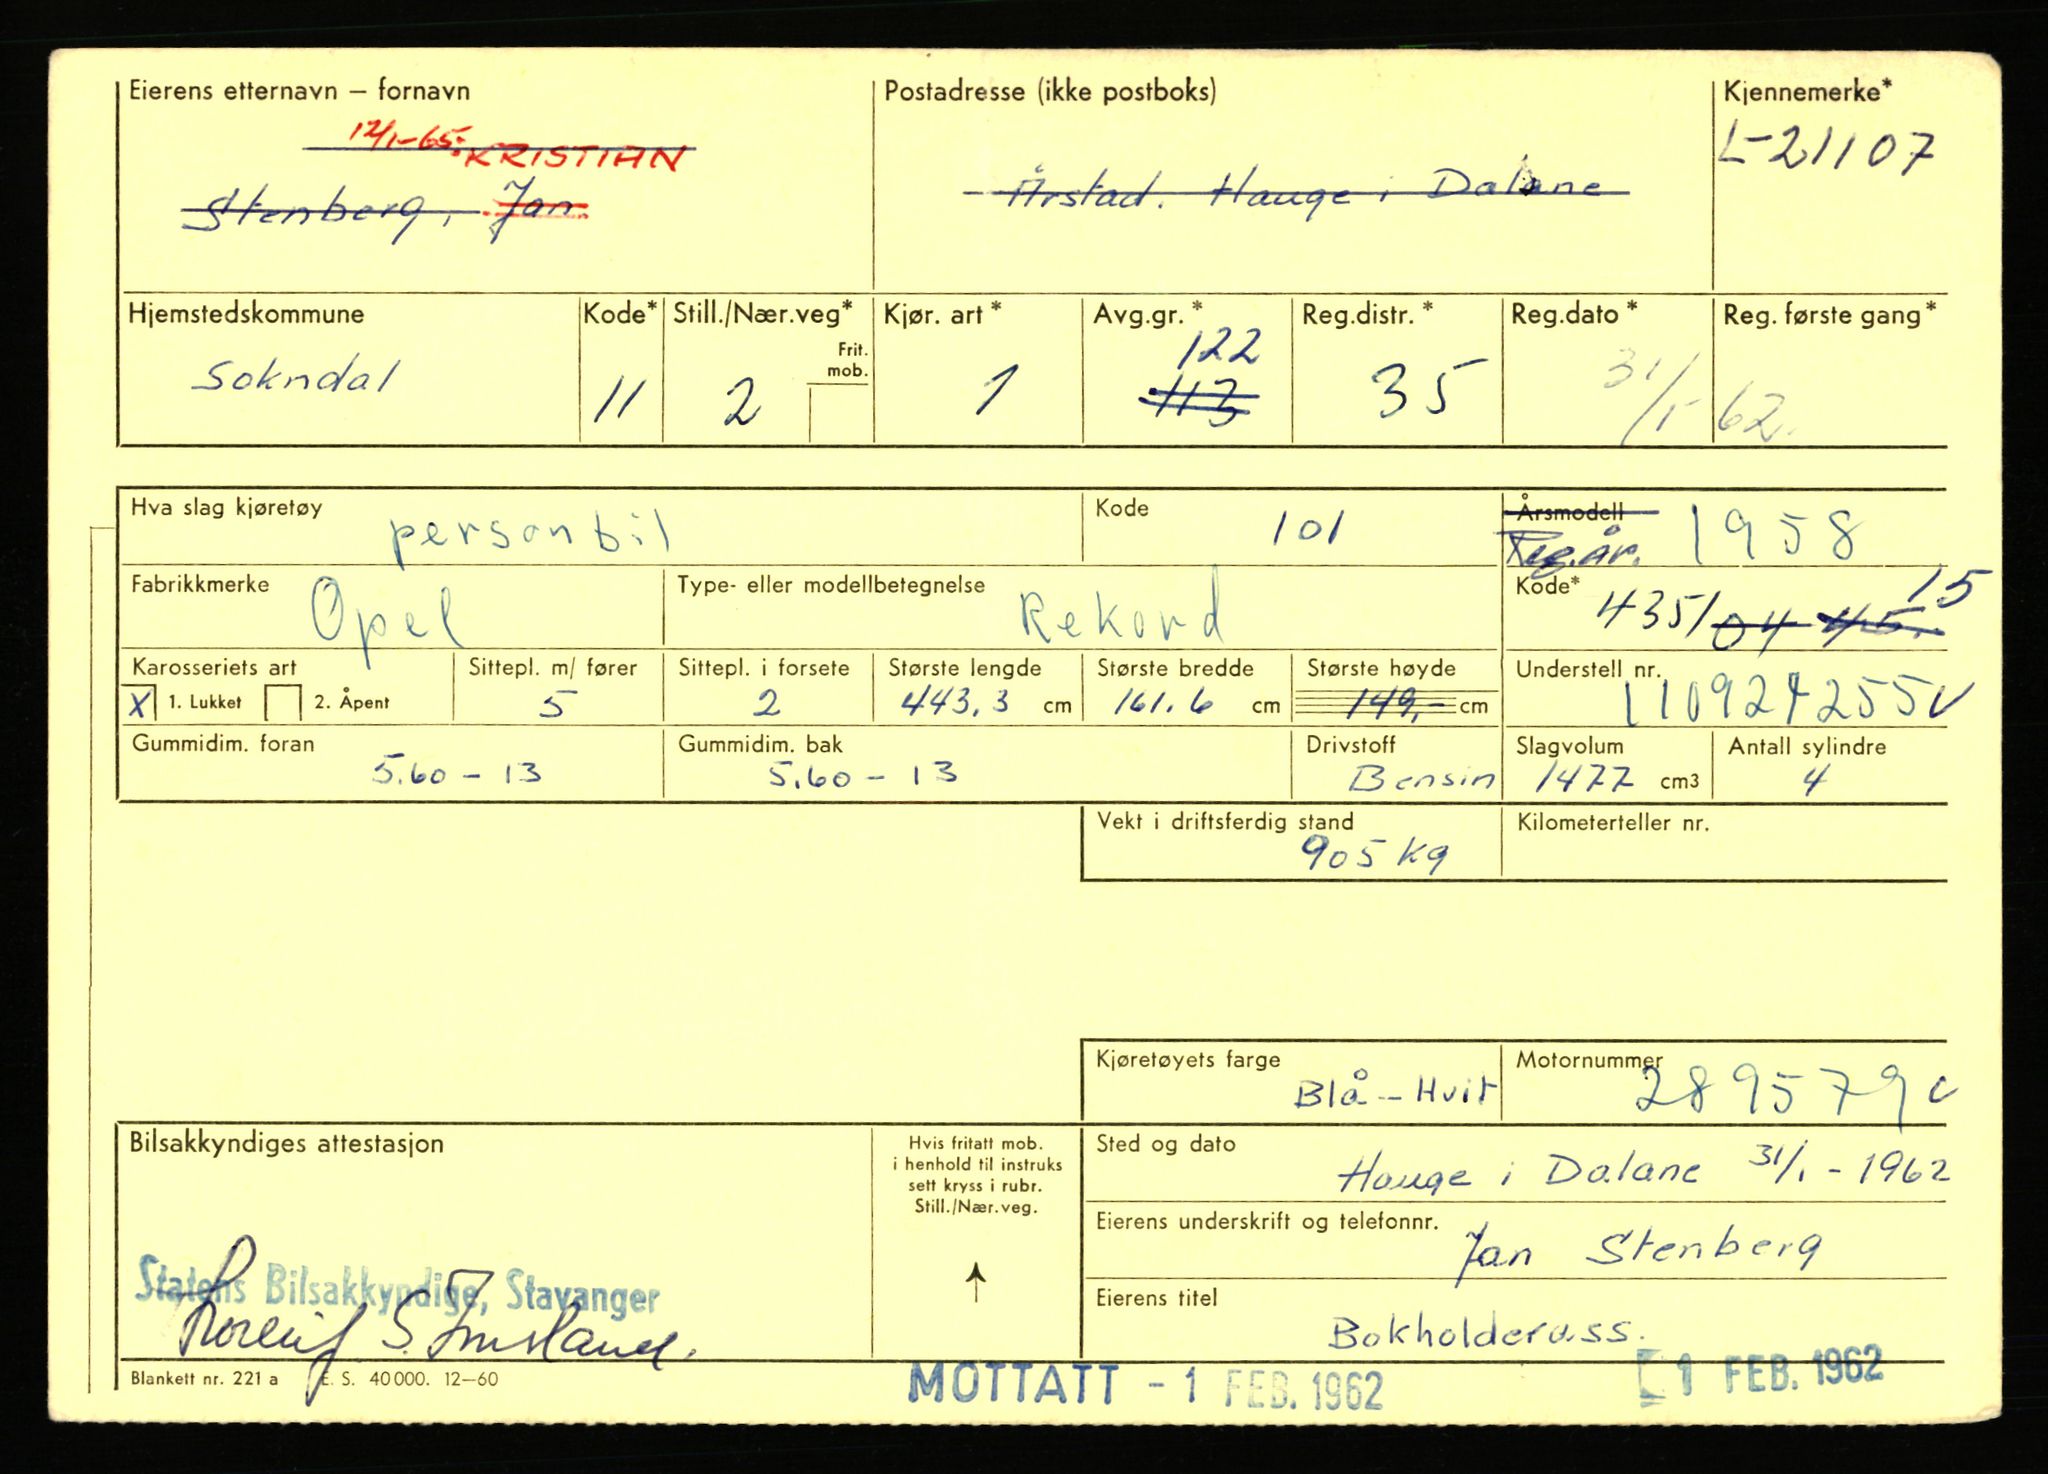 Eierens etternavn – fornavn
Postadresse (ikke postboks)
Kjennemerke*
12/1-65. KRISTIAN
Stenberg, Jan
Årstad. Hauge i Dalane
L-21107
Hjemstedskommune
Kode*
Still./Nær.veg*
Kjør. art*
Avg.gr.*
Reg.distr.*
Reg.dato*
Reg. første gang*
Frit. mob.
122
Sokndal
11
2
1
113
35
31/1-62.
Hva slag kjøretøy
personbil
Kode
101
Årsmodell
Reg.år.
1958
Fabrikkmerke
Opel
Type- eller modellbetegnelse
Rekord
Kode*
4351 04 45. 15
Karosseriets art
Sittepl. m/ fører
Sittepl. i forsete
Største lengde
Største bredde
Største høyde
Understell nr.
X 1. Lukket
2. Åpent
5
2
443,3 cm
161.6 cm
149,- cm
110924255 v
Gummidim. foran
Gummidim. bak
Drivstoff
Slagvolum
Antall sylindre
5.60 - 13
5.60 - 13
Bensin
1477 cm3
4
Vekt i driftsferdig stand
Kilometerteller nr.
905 kg
Kjøretøyets farge
Motornummer
Blå - Hvit
289579 v
Bilsakkyndiges attestasjon
Hvis fritatt mob.
i henhold til instruks
sett kryss i rubr.
Still./Nær.veg.
Sted og dato
Hauge i Dalane 31/1 - 1962
Eierens underskrift og telefonnr.
Jan Stenberg
Statens Bilsakkyndige, Stavanger
Eierens titel
Bokholderass.
Blankett nr. 221 a E. S. 40 000. 12–60
MOTTATT - 1 FEB. 1962
1 FEB. 1962